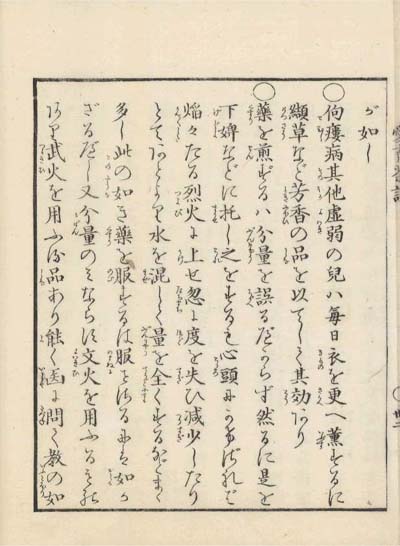 が如し
〇佝僂病其他虚弱の児ハ毎日衣を更へ薫ずるに
纈草など芳香の品を以てして其効あり
〇薬を煎ずるハ分量を誤るべからず然るに是を
下婢などに托し之をするも心顕にかけざれば
焔々たる烈火に上せ忽ち度を失ひ減少したり
とてあとより水を混じて量を全くする者多く
多し此の如き薬を服するは服せざるにも如か
ざるべし又分量のみならず文火を用ふるもの
あり武火を用ふる品あり能く医に問て教の如